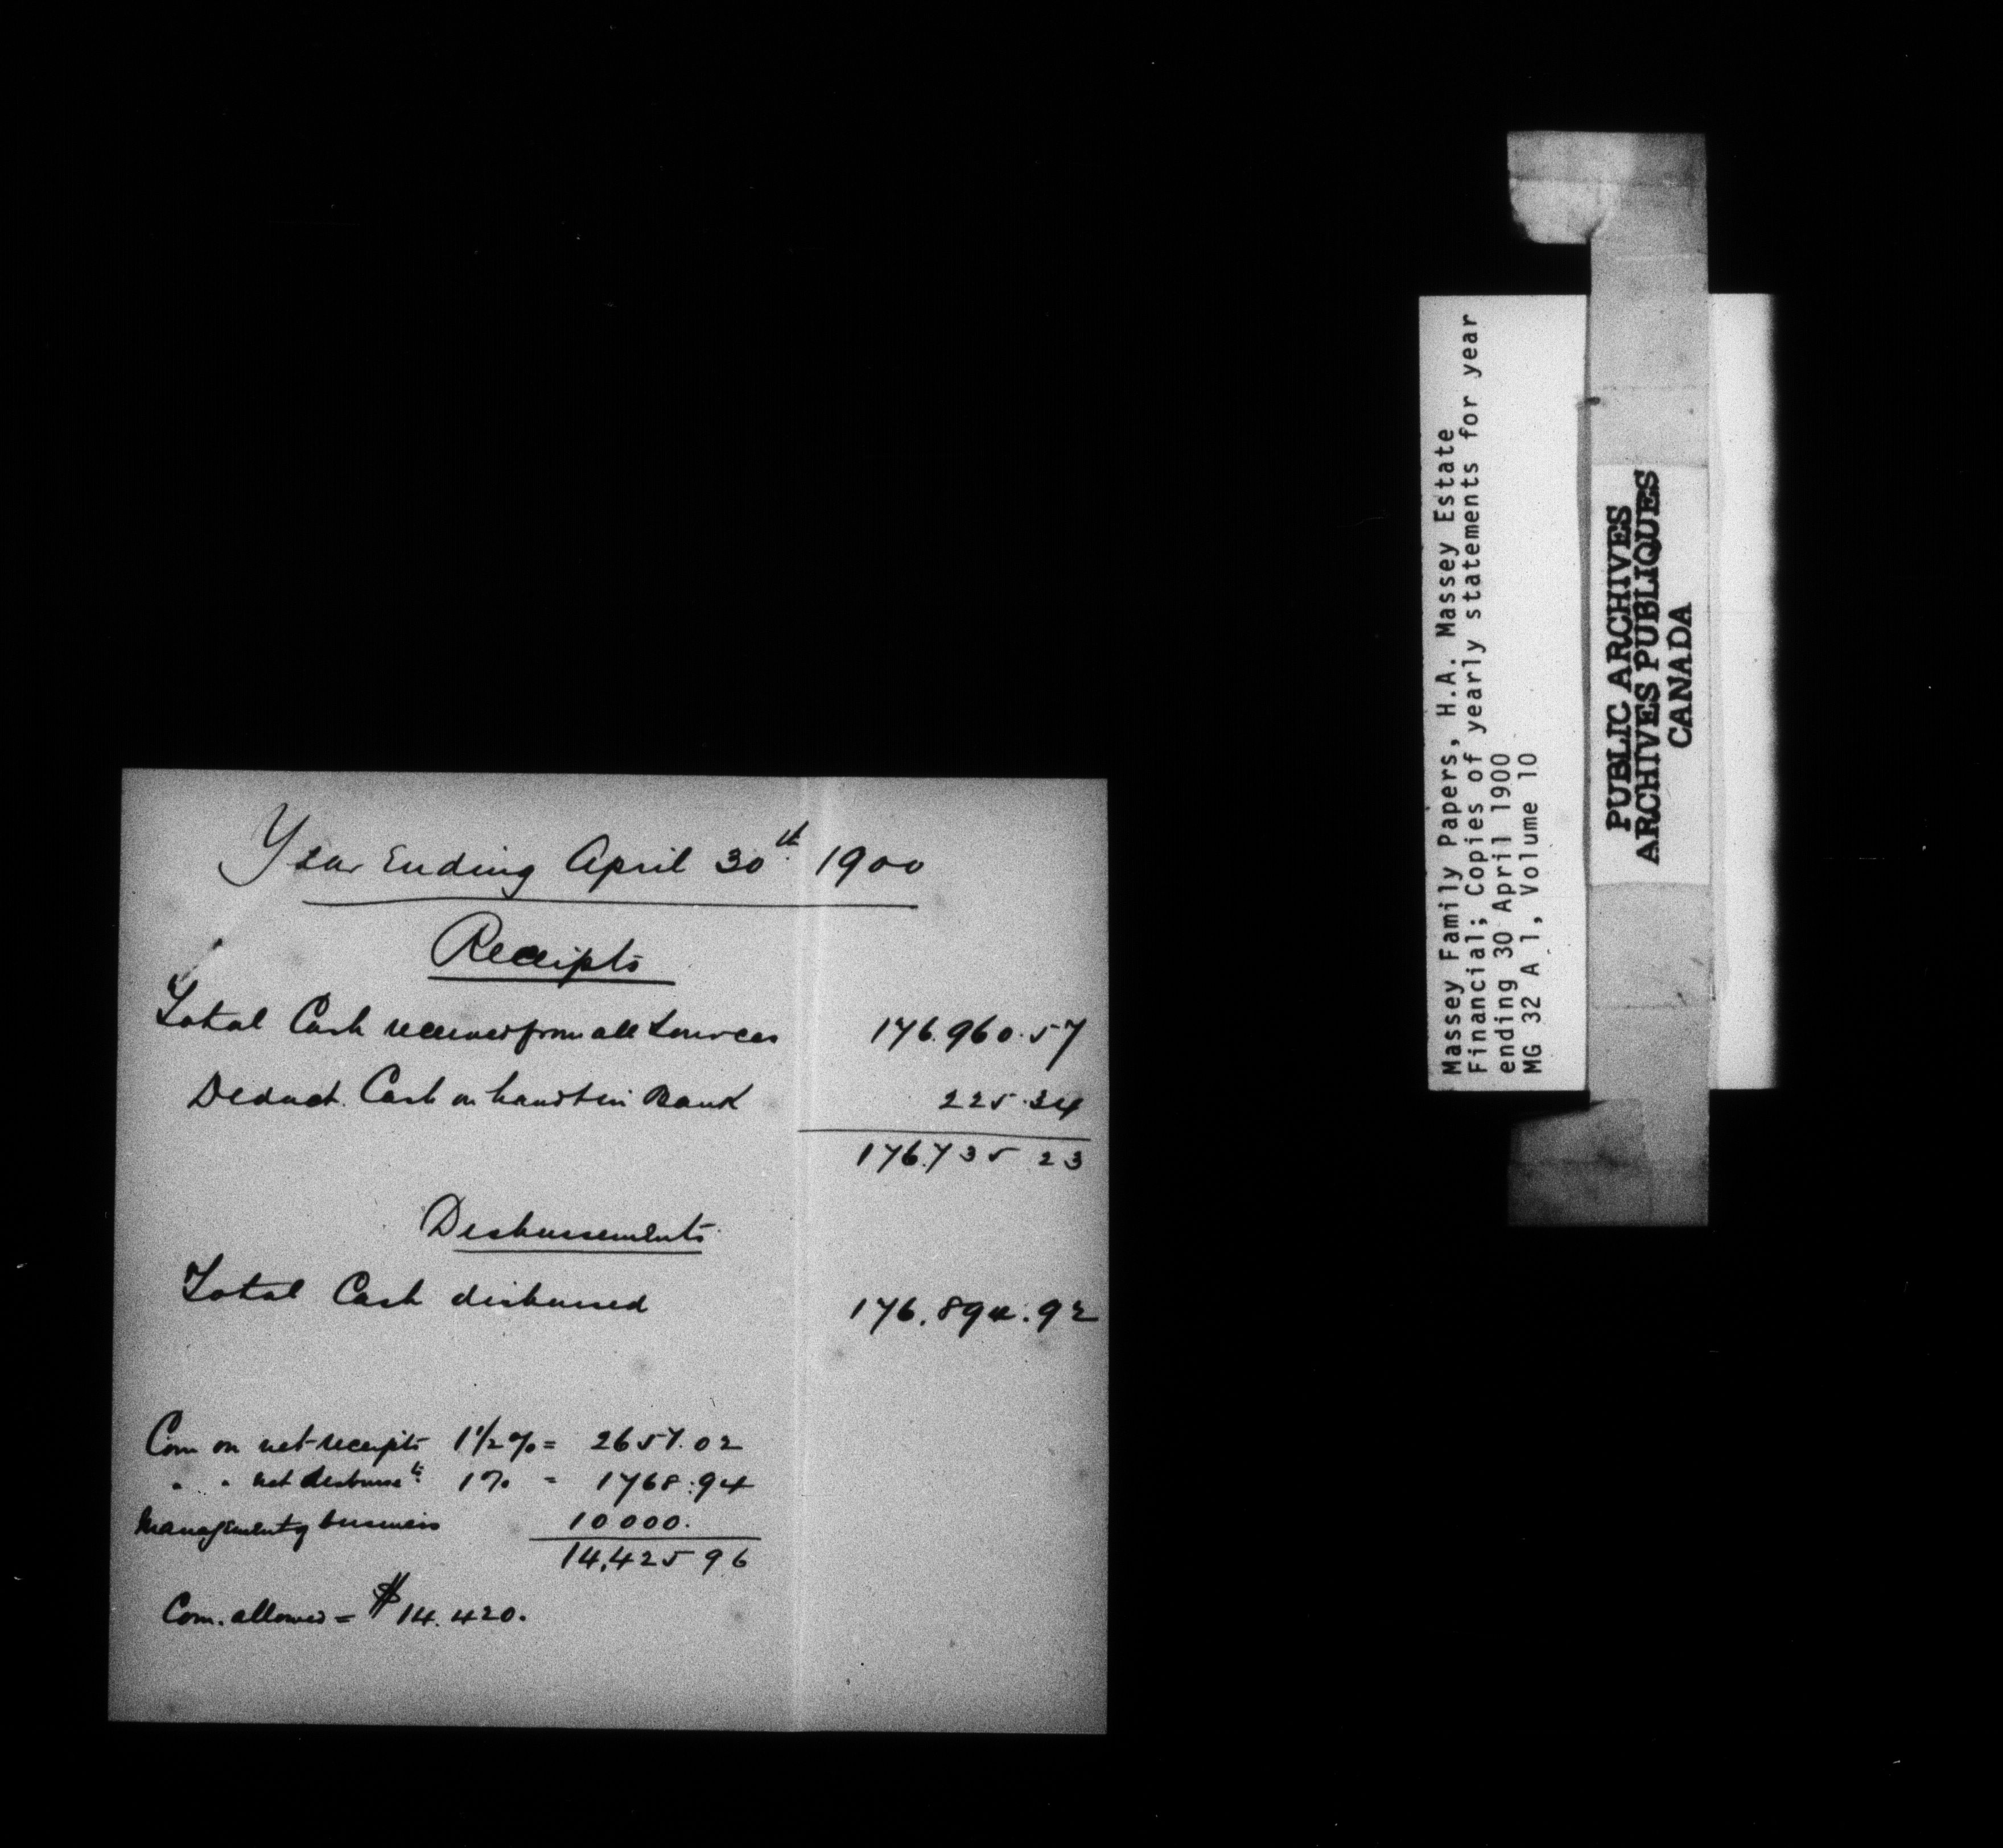 Year Ending April 30th 1900
Receipts
Total Cash received from all Sources 176.960.57
Deduct. Cash on hand & in Bank 225.34
176.735 23
Disbursements
Total Cash disbursed 176.894.92
Com on net receipts 1 1/2 % = 2651.02
" " net disburse'ts 1% = 1768.94
Management of business 10000.
14,425 96
Com. allowed = $14.420.
Massey Family Papers, H.A. Massey Estate
Financial; Copies of yearly statements for year
ending 30 April 1900
MG 32 A 1, Volume 10
PUBLIC ARCHIVES
ARCHIVES PUBLIQUES
CANADA